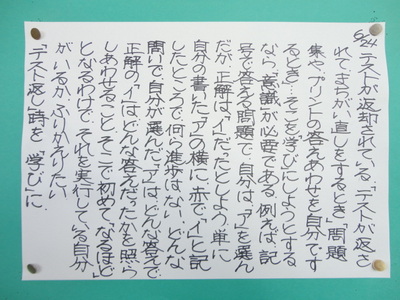 5/24 テストが返却されている。「テストが返さ
れてまちがい直しをするとき」「問題
集や、プリントの答えあわせを自分です
るとき」…そこを「学び」にしようとする
なら、「意識」が必要である。例えば、記
号で答える問題で、自分は、「ア」を選ん
だが、正解は、「イ」だったとしよう。単に
自分の書いた「ア」の横に、赤で「イ」と記
したところで、何ら進歩はない。どんな
問いで、自分が選んだ「ア」は、どんな答えで
正解の「イ」はどんな答えだったかを照ら
しあわせること、そこで初めて、「なるほど」
となるわけで、それを実行している自分
がいるか、ふりかえりたい
「テスト返し」時を「学び」に